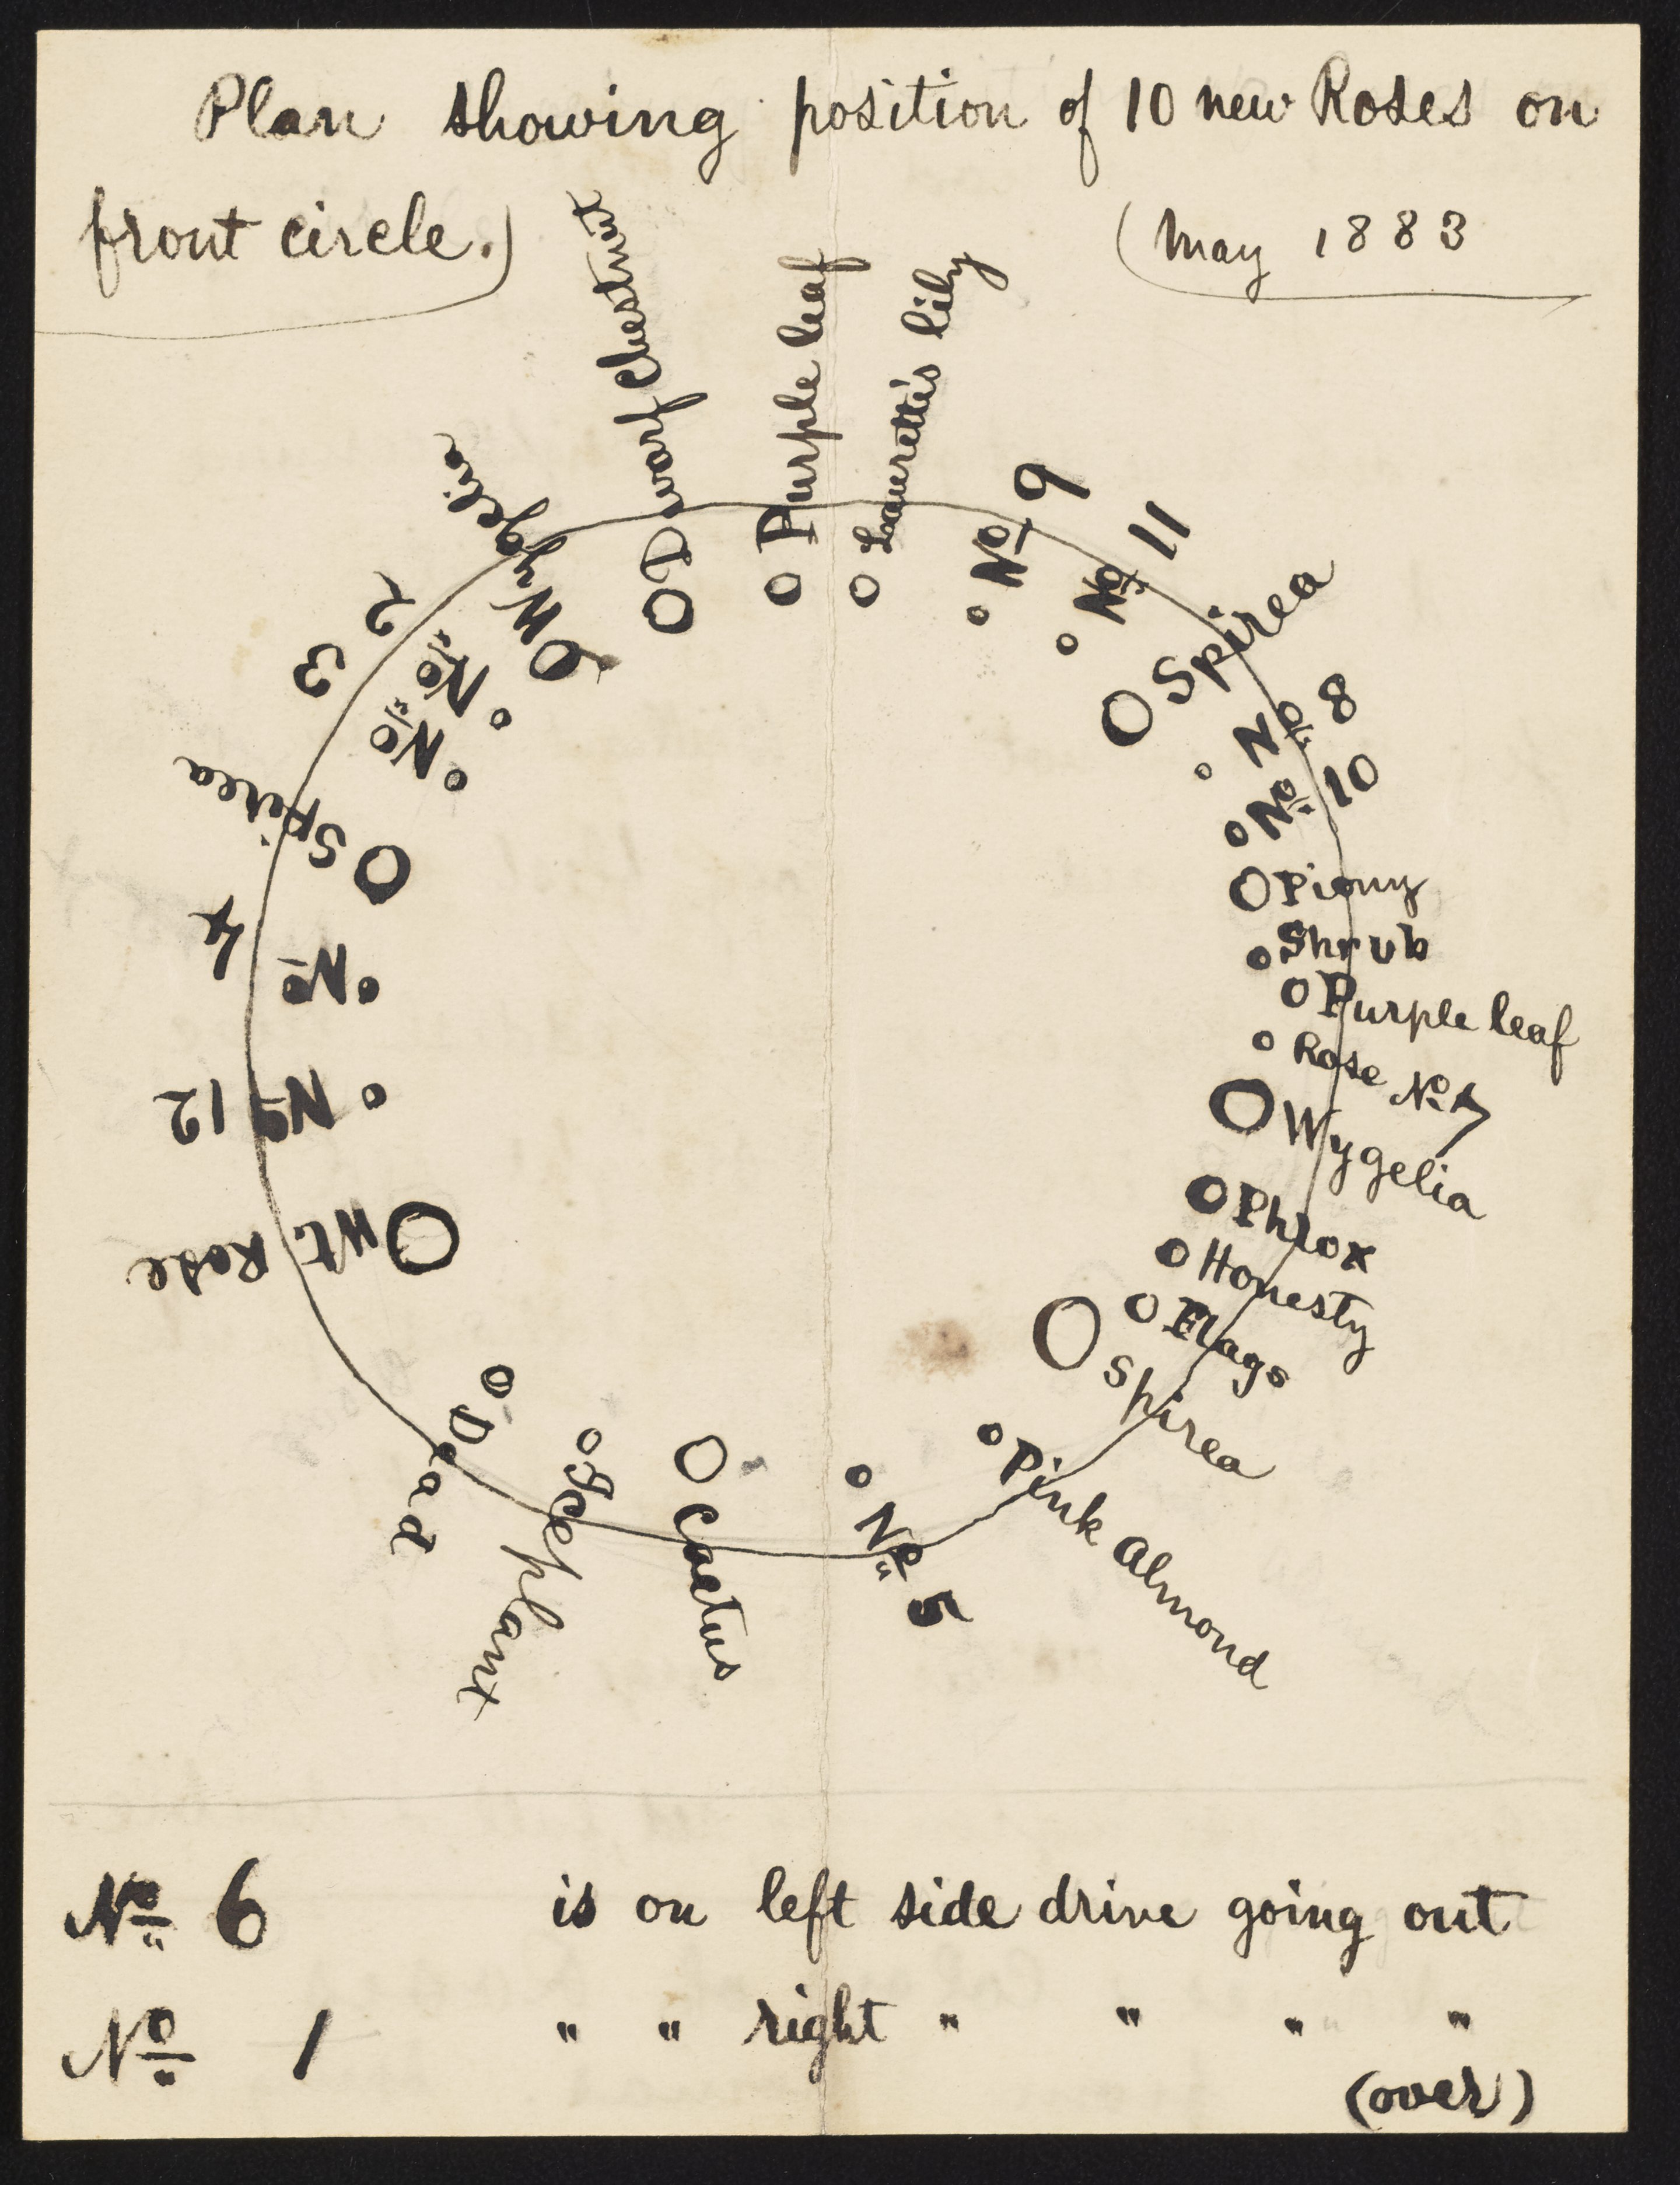 Plan showing position of 10 new Roses on
front circle.)
(May 1883
Dwarf Chestnut
Purple leaf
Lauretti's lily
No 9
No 11
Spirea
No 8
No 10
Piony
Shrub
Purple leaf
Rose No 7
Wygelia
Phlox
Honesty
Flags
Spirea
Pink Almond
No 5
Cactus
Iceplant
Dead
Wt. Rose
No 12
No 4
Spirea
No 3
No 2
Wygelia
No 6 is on left side drive going out
No 1 " " right " " " "
(over)